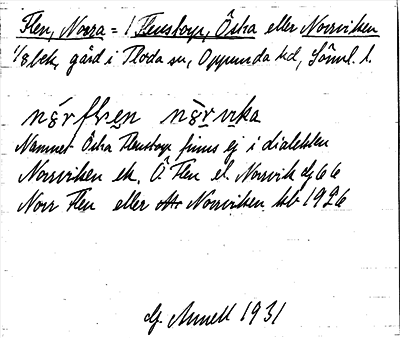 Flen, Norra = 1 Flenstorp, Östra eller Norrviken
1/8 bek. gård i Floda sn, Oppunda hd, Söml. l.
Namnet Östra Flenstorp finns ej i dialekten
Norrviken ek. Ö Flen el. Norrvik dj 66
Norr Flen eller Norrviken hb 1926
1931